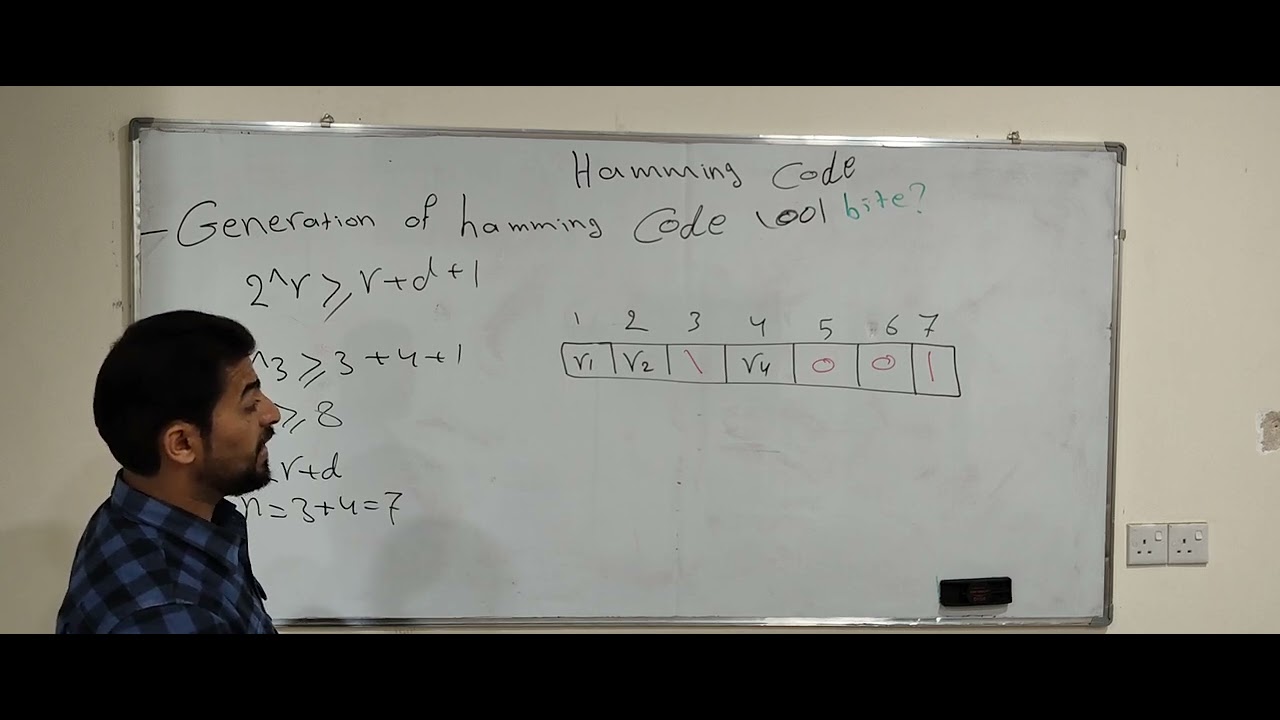 Hamming Code
- Generation of hamming Code 1001 bite?
2^r ≥ r+d+1
^3 ≥ 3+4+1
≥ 8
r+d
n = 3+4 = 7
1 2 3 4 5 6 7
r1 r2 1 r4 0 0 1